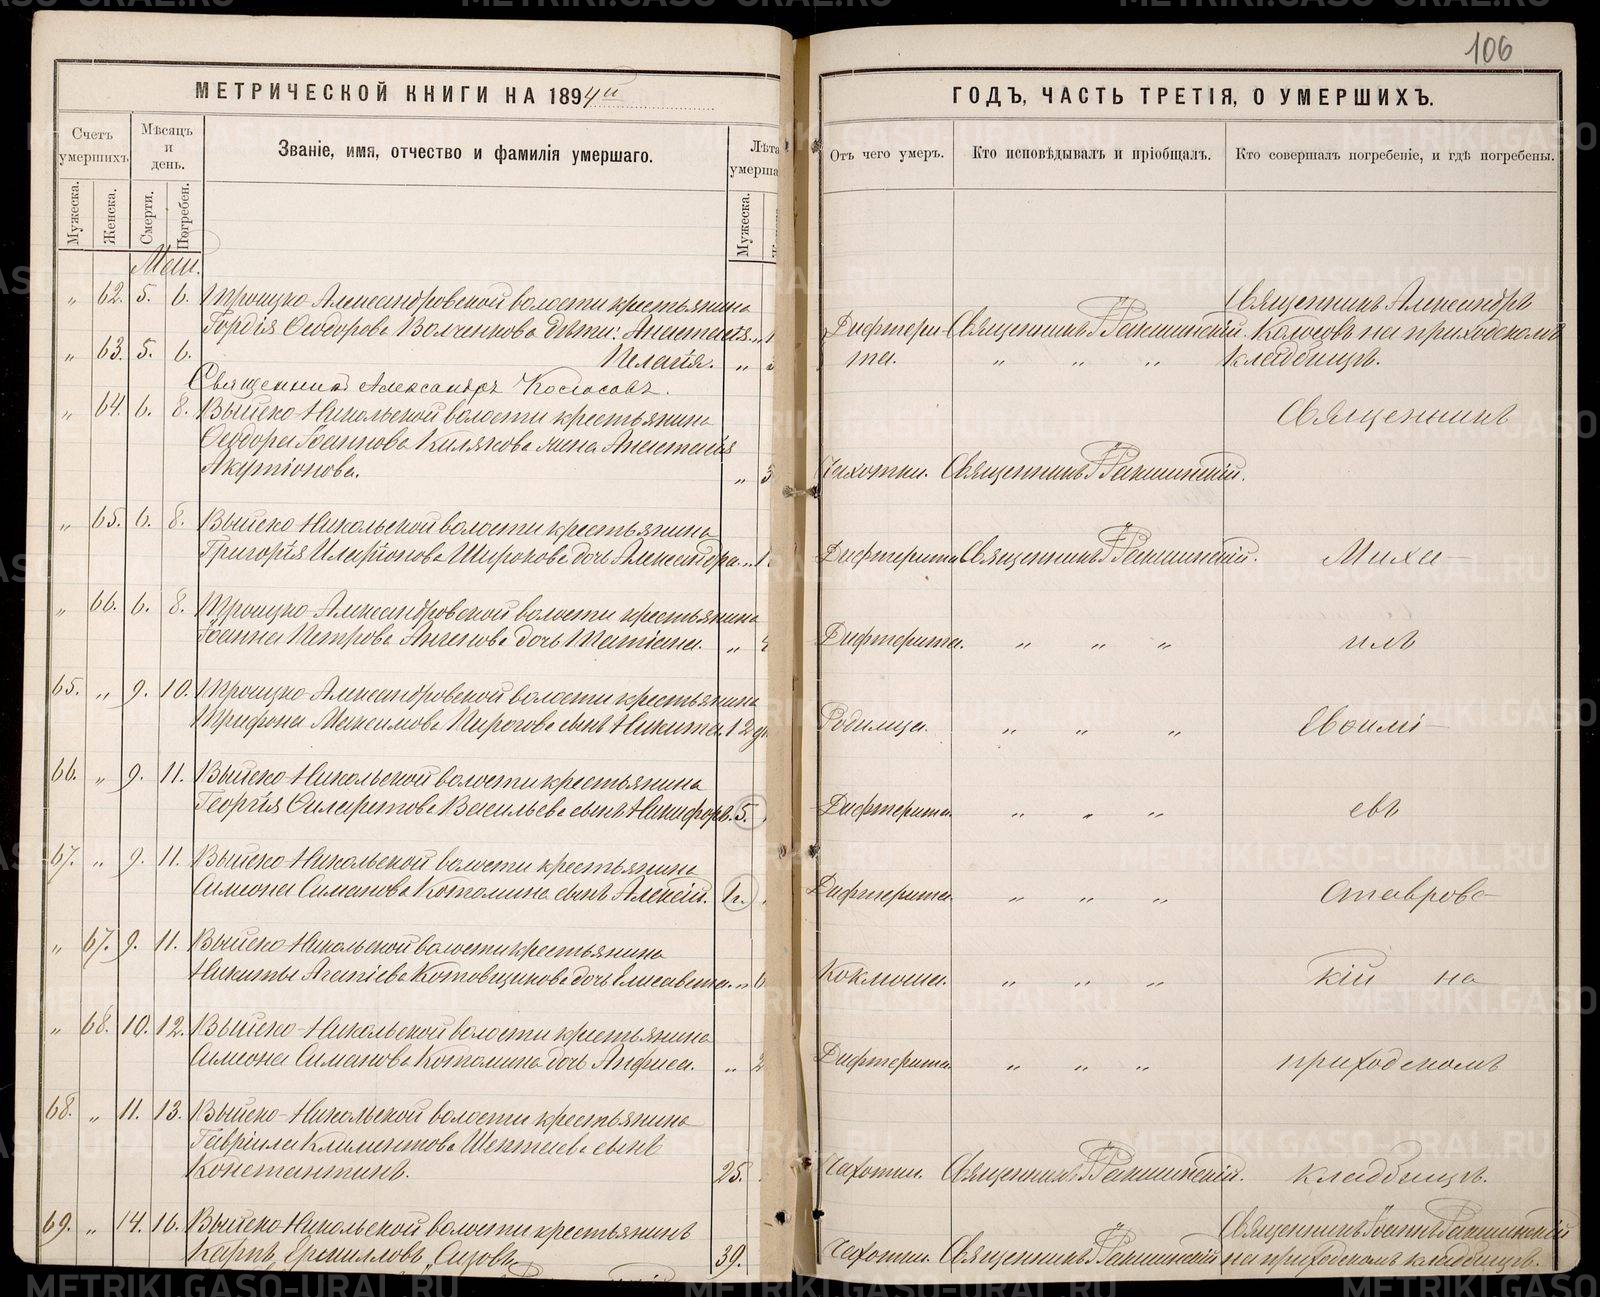 106
МЕТРИЧЕСКОЙ КНИГИ НА 1894й
ГОДЪ, ЧАСТЬ ТРЕТІЯ, О УМЕРШИХЪ.
Счетъ умершихъ
Мѣсяцъ и день.
Званіе, имя, отчество и фамилія умершаго.
Лѣта умерша
Отъ чего умеръ.
Кто исповѣдывалъ и пріобщалъ.
Кто совершалъ погребеніе, и гдѣ погребены.
Мужеска.
Женска.
Смерти.
Погребен.
Мужеска.
Маи.
„ 62. 5. 6. Троицко Александровской волости крестьянина
Священникъ Александръ
Гордія Ѳеодорова Волченкова дѣти: Анастасія „ 1
Дифтери- Священникъ І Ракшинскій. Колосовъ на приходскомъ
„ 63. 5. 6. Пелагія. „
та. „ „ „ кладбищѣ.
Священникъ Александръ Колосовъ.
„ 64. 6. 8. Выйско-Никольской волости крестьянина
Священникъ
Ѳеодора Іоаннова Килякова жена Анастасія
Акутіонова. „ 5
Чахотки. Священникъ І Ракшинскій.
„ 65. 6. 8. Выйско Никольской волости крестьянина
Григорія Иларіонова Широкова дочь Александра. „ 1
Дифтерита Священникъ І Ракшинскій. Миха-
„ 66. 6. 8. Троицко Александровской волости крестьянина
Іоанна Петрова дочь Татіана. „
Дифтерита. „ „ „ илъ
65. „ 9. 10. Троицко-Александровской волости крестьянина
Трифона Максимова Пирогова сынъ Никита. 12
Родимца. „ „ „ Евоимі-
66. „ 9. 11. Выйско Никольской волости крестьянина
Георгія Филаретова Васильева сынъ Никифоръ. 5.
Дифтерита. „ „ „ евъ
67. „ 9. 11. Выйско-Никольской волости крестьянина
Симеона Симанова Котомина сынъ Алексій. 1г.
Дифтерита. „ „ „ Ставров-
„ 67. 9. 11. Выйско Никольской волости крестьянина
Никиты Агапіева Котовщикова дочь Елисавета. „ 6
Коклюша. „ „ „ кій на
„ 68. 10. 12. Выйско-Никольской волости крестьянина
Симеона Симанова Котомина дочь Анфиса. „ 2
Дифтерита „ „ „ приходскомъ
68. „ 11. 13. Выйско-Никольской волости крестьянина
Гавріила Климентова Шептаева сынъ
Константинъ. 25.
Чахотки. Священникъ І Ракшинскій. кладбищѣ.
69. „ 14. 16. Выйско Никольской волости крестьянинъ
Священникъ Іоаннъ Ракшинскій
Карпъ Ермилловъ Сизовъ 39.
Чахотки. Священникъ І Ракшинскій на приходскомъ кладбищѣ.
METRIKI.GASO-URAL.RU